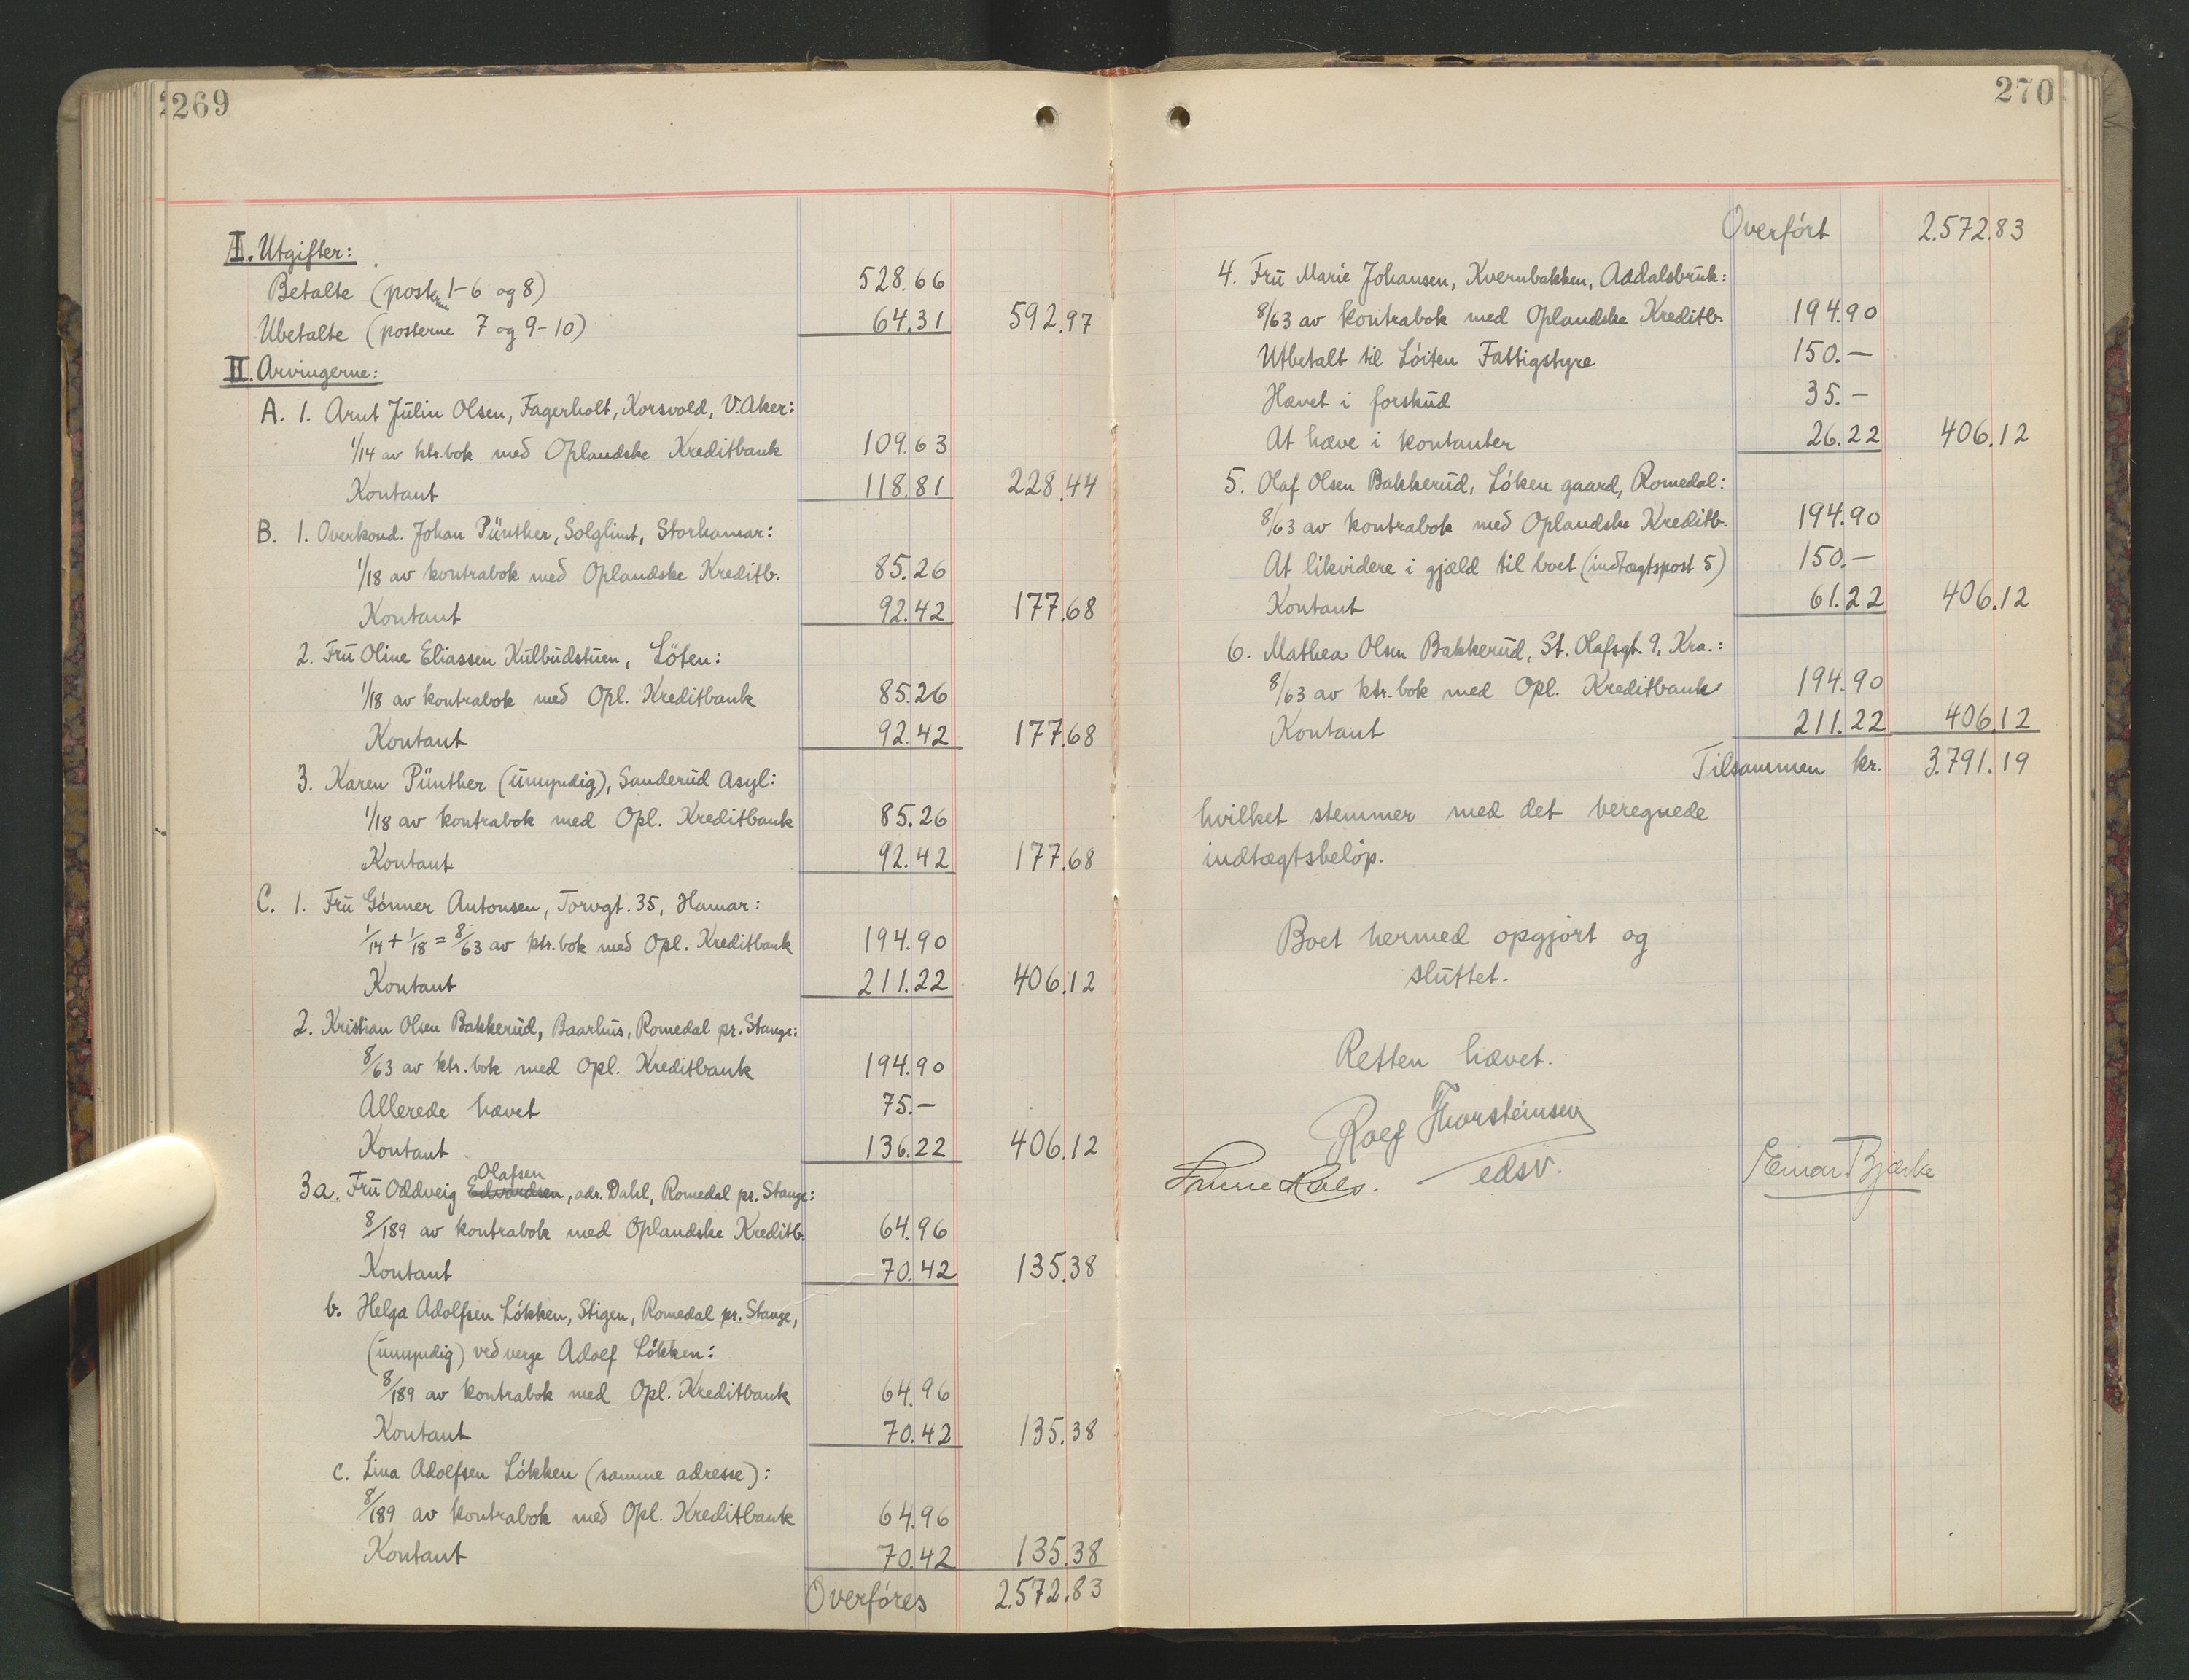 269
I. Utgifter:
Betalte (posterne 1-6 og 8) 528.66
Ubetalte (posterne 7 og 9-10) 64.31 592.97
II. Arvingerne:
A. 1. Arnt Julin Olsen, Fagerholt, Korsvold, V. Aker:
1/14 av ktr.bok med Oplandske Kreditbank 109.63
Kontant 118.81 228.44
B. 1. Overkond. Johan Pünther, Solglimt, Storhamar:
1/18 av kontrabok med Oplandske Kreditb. 85.26
Kontant 92.42 177.68
2. Fru Oline Eliassen Kulbudstuen, Löten:
1/18 av kontrabok med Opl. Kreditbank 85.26
Kontant 92.42 177.68
3. Karen Pünther (umyndig), Sanderud Asyl:
1/18 av kontrabok med Opl. Kreditbank 85.26
Kontant 92.42 177.68
C. 1. Fru Gónner Antonsen, Torvgt. 35, Hamar:
1/14 + 1/18 = 8/63 av ktr.bok med Opl. Kreditbank 194.90
Kontant 211.22 406.12
2. Kristian Olsen Bakkerud, Baarhus, Romedal pr. Stange:
8/63 av ktr.bok med Opl. Kreditbank 194.90
Allerede hævet 75.-
Kontant 136.22 406.12
Olafsen
3a. Fru Oddveig Edvardsen, adr. Dahl, Romedal pr. Stange:
8/189 av kontrabok med Oplandske Kreditb. 64.96
Kontant 70.42 135.38
b. Helga Adolfsen Lókken, Stigen, Romedal pr. Stange,
(umyndig) ved verge Adolf Lókken:
8/189 av kontrabok med Opl. Kreditbank 64.96
Kontant 70.42 135.38
c. Lina Adolfsen Lókken (samme adresse):
8/189 av kontrabok med Opl. Kreditbank 64.96
Kontant 70.42 135.38
Overfóres 2.572.83
270
Overfórt 2.572.83
4. Fru Marie Johansen, Kvernbakken, Aadalsbruk:
8/63 av kontrabok med Oplandske Kreditb. 194.90
Utbetalt til Lóiten Fattigstyre 150.-
Hævet i forskud 35.-
At hæve i kontanter 26.22 406.12
5. Olaf Olsen Bakkerud, Lóken gaard, Romedal:
8/63 av kontrabok med Oplandske Kreditb. 194.90
At likvidere i gjæld til boet (indtægtspost 5) 150.-
Kontant 61.22 406.12
6. Mathea Olsen Bakkerud, St. Olafsgt. 9, Kra.:
8/63 av ktr.bok med Opl. Kreditbank 194.90
Kontant 211.22 406.12
Tilsammen kr. 3.791.19
hvilket stemmer med det beregnede
indtægtsbelóp.
Boet hermed opgjórt og
sluttet.
Retten hævet.
Rolf Thorsteinsen
edsv.
Einar Bjerke